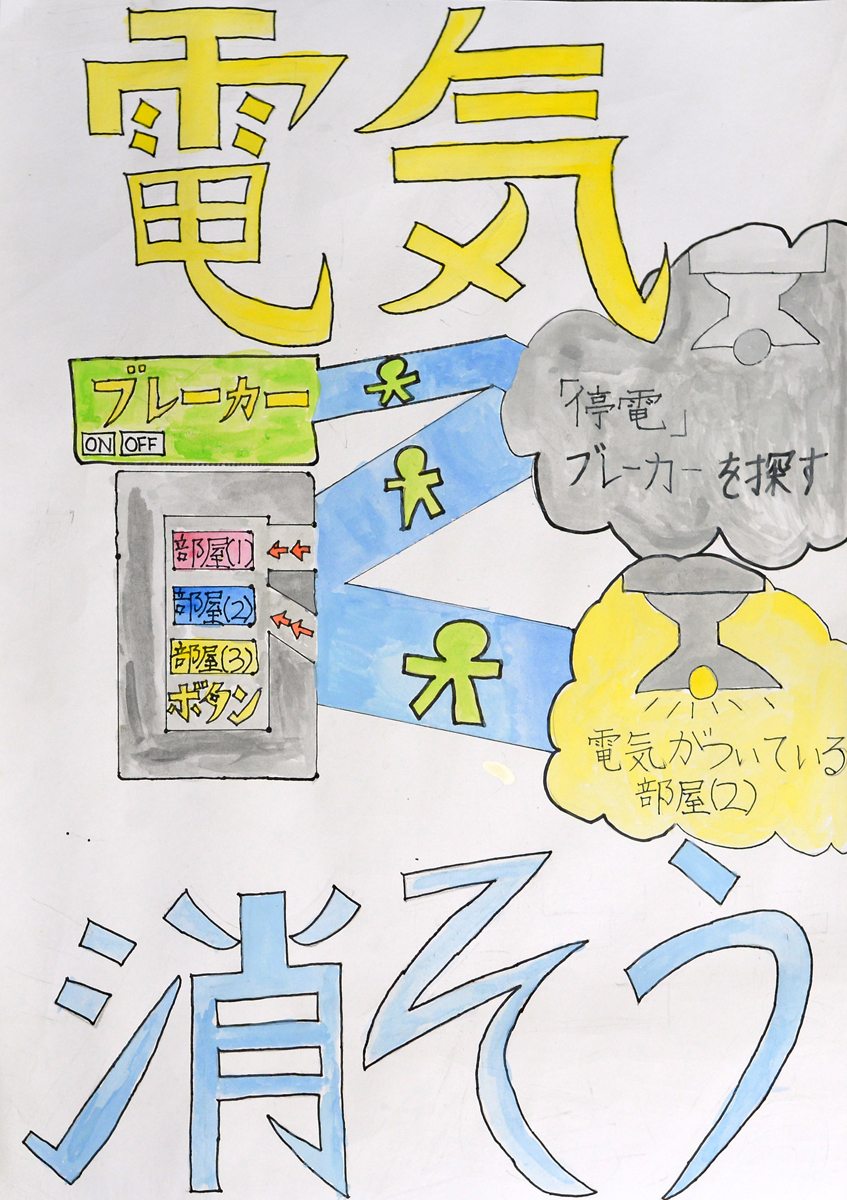 電気
ブレーカー
ON OFF
「停電」
ブレーカーを探す
部屋(1)
部屋(2)
部屋(3)
ボタン
電気がついている
部屋(2)
消そう